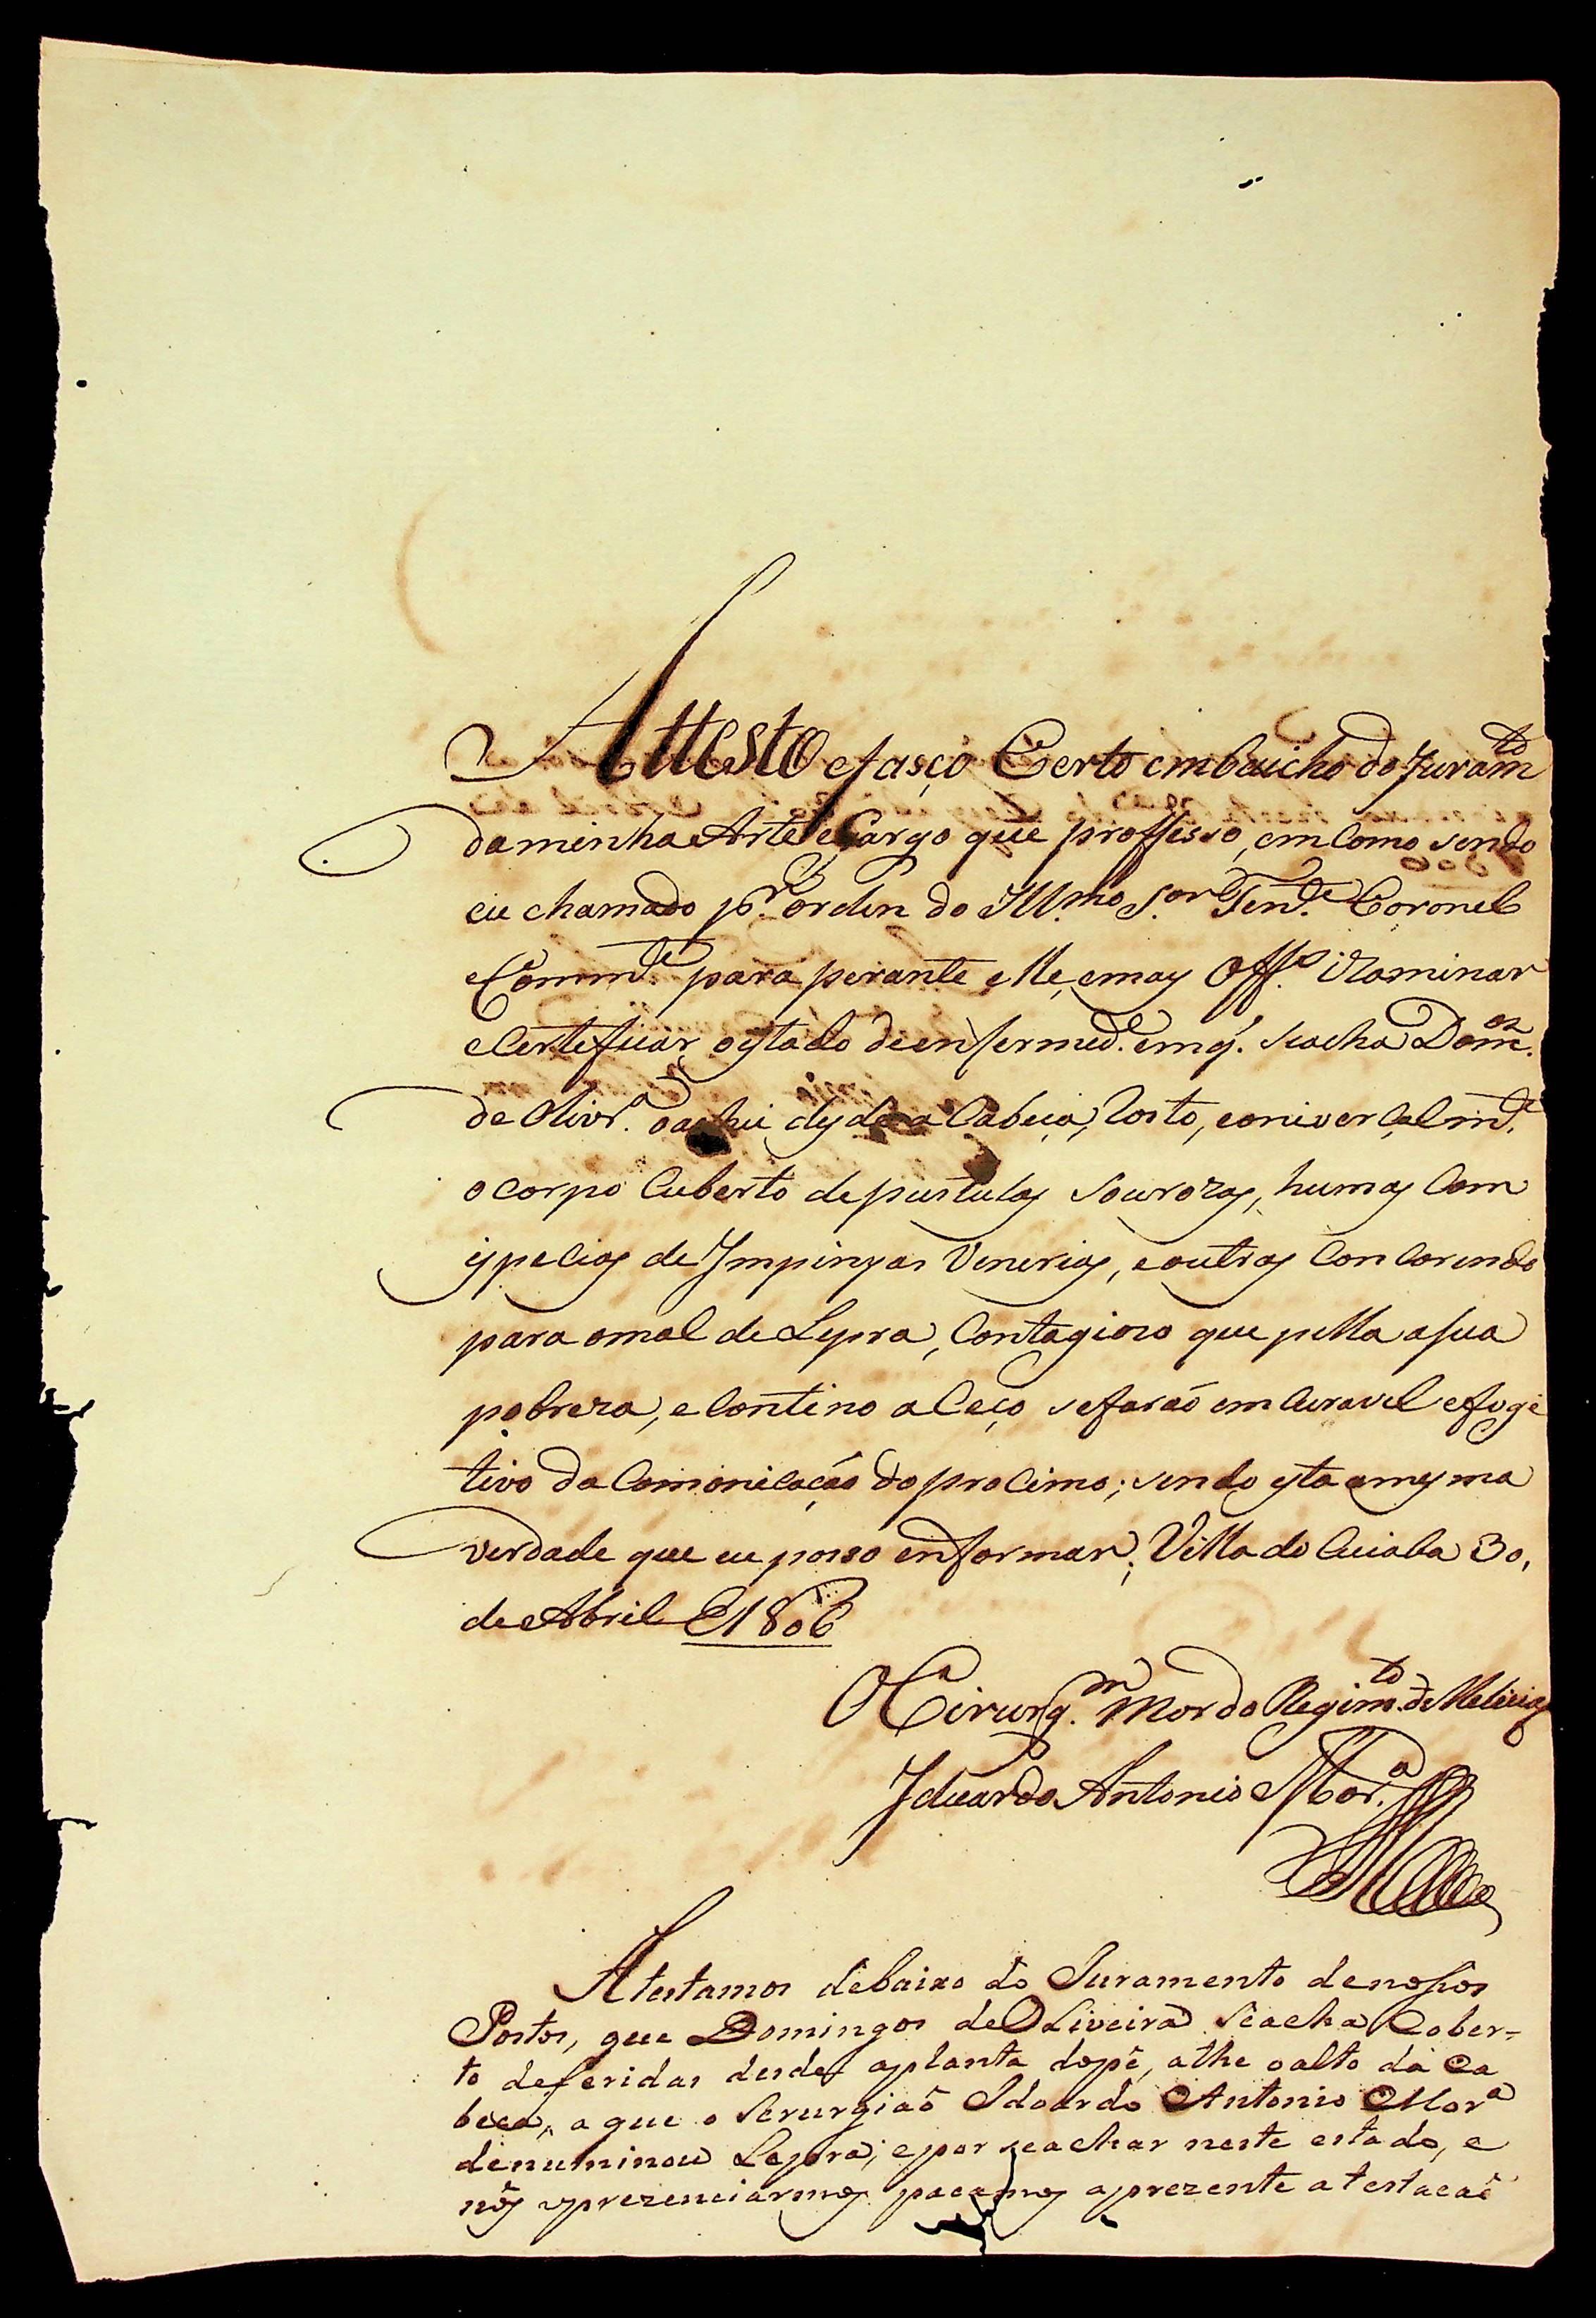 Attesto e fasço Certo embaicho do Juram.to
da minha Arte e Cargo que proffesso, em Como sendo
eu chamado p.r ordem do Ill.mo S.or Ten.e Coronel
e Comm.de para perante elle, e mays Off.s izaminar
e Certeficar o estado de enfermed.e em q. se acha Dom.os
de Olivr.a o achei desde a Cabeça, Rosto, e oniverçalm.te
o corpo Cuberto de pustulas Sourozas, humas Com
ispecias de Impingas Venerias, e outras Concorendo
para o mal de Lepra, Contagiozo que pella a sua
pobreza, e Contino aCeço se fará emCuravel e fuge
tivo da Comonicação do procimo; sendo esta a mesma
verdade que eu posso enformar; Villa do Cuiaba 30,
de Abril e 1806
O Cirurg.m Mor do Regim.to de Melicias
Iduardo Antonio Mor.a
Atestamos debaixo do Juramento de nossos
Postos, que Domingos de OLiveira se acha Cober=
to de feridas desde a planta do pê, athe o alto da Ca
beca, a que o Serurgiaõ Idoardo Antonio Mor.a
denuminou Lepra; e por se achar neste estado, e
nôs o prezenciarmos pacamos a prezente atestacaõ